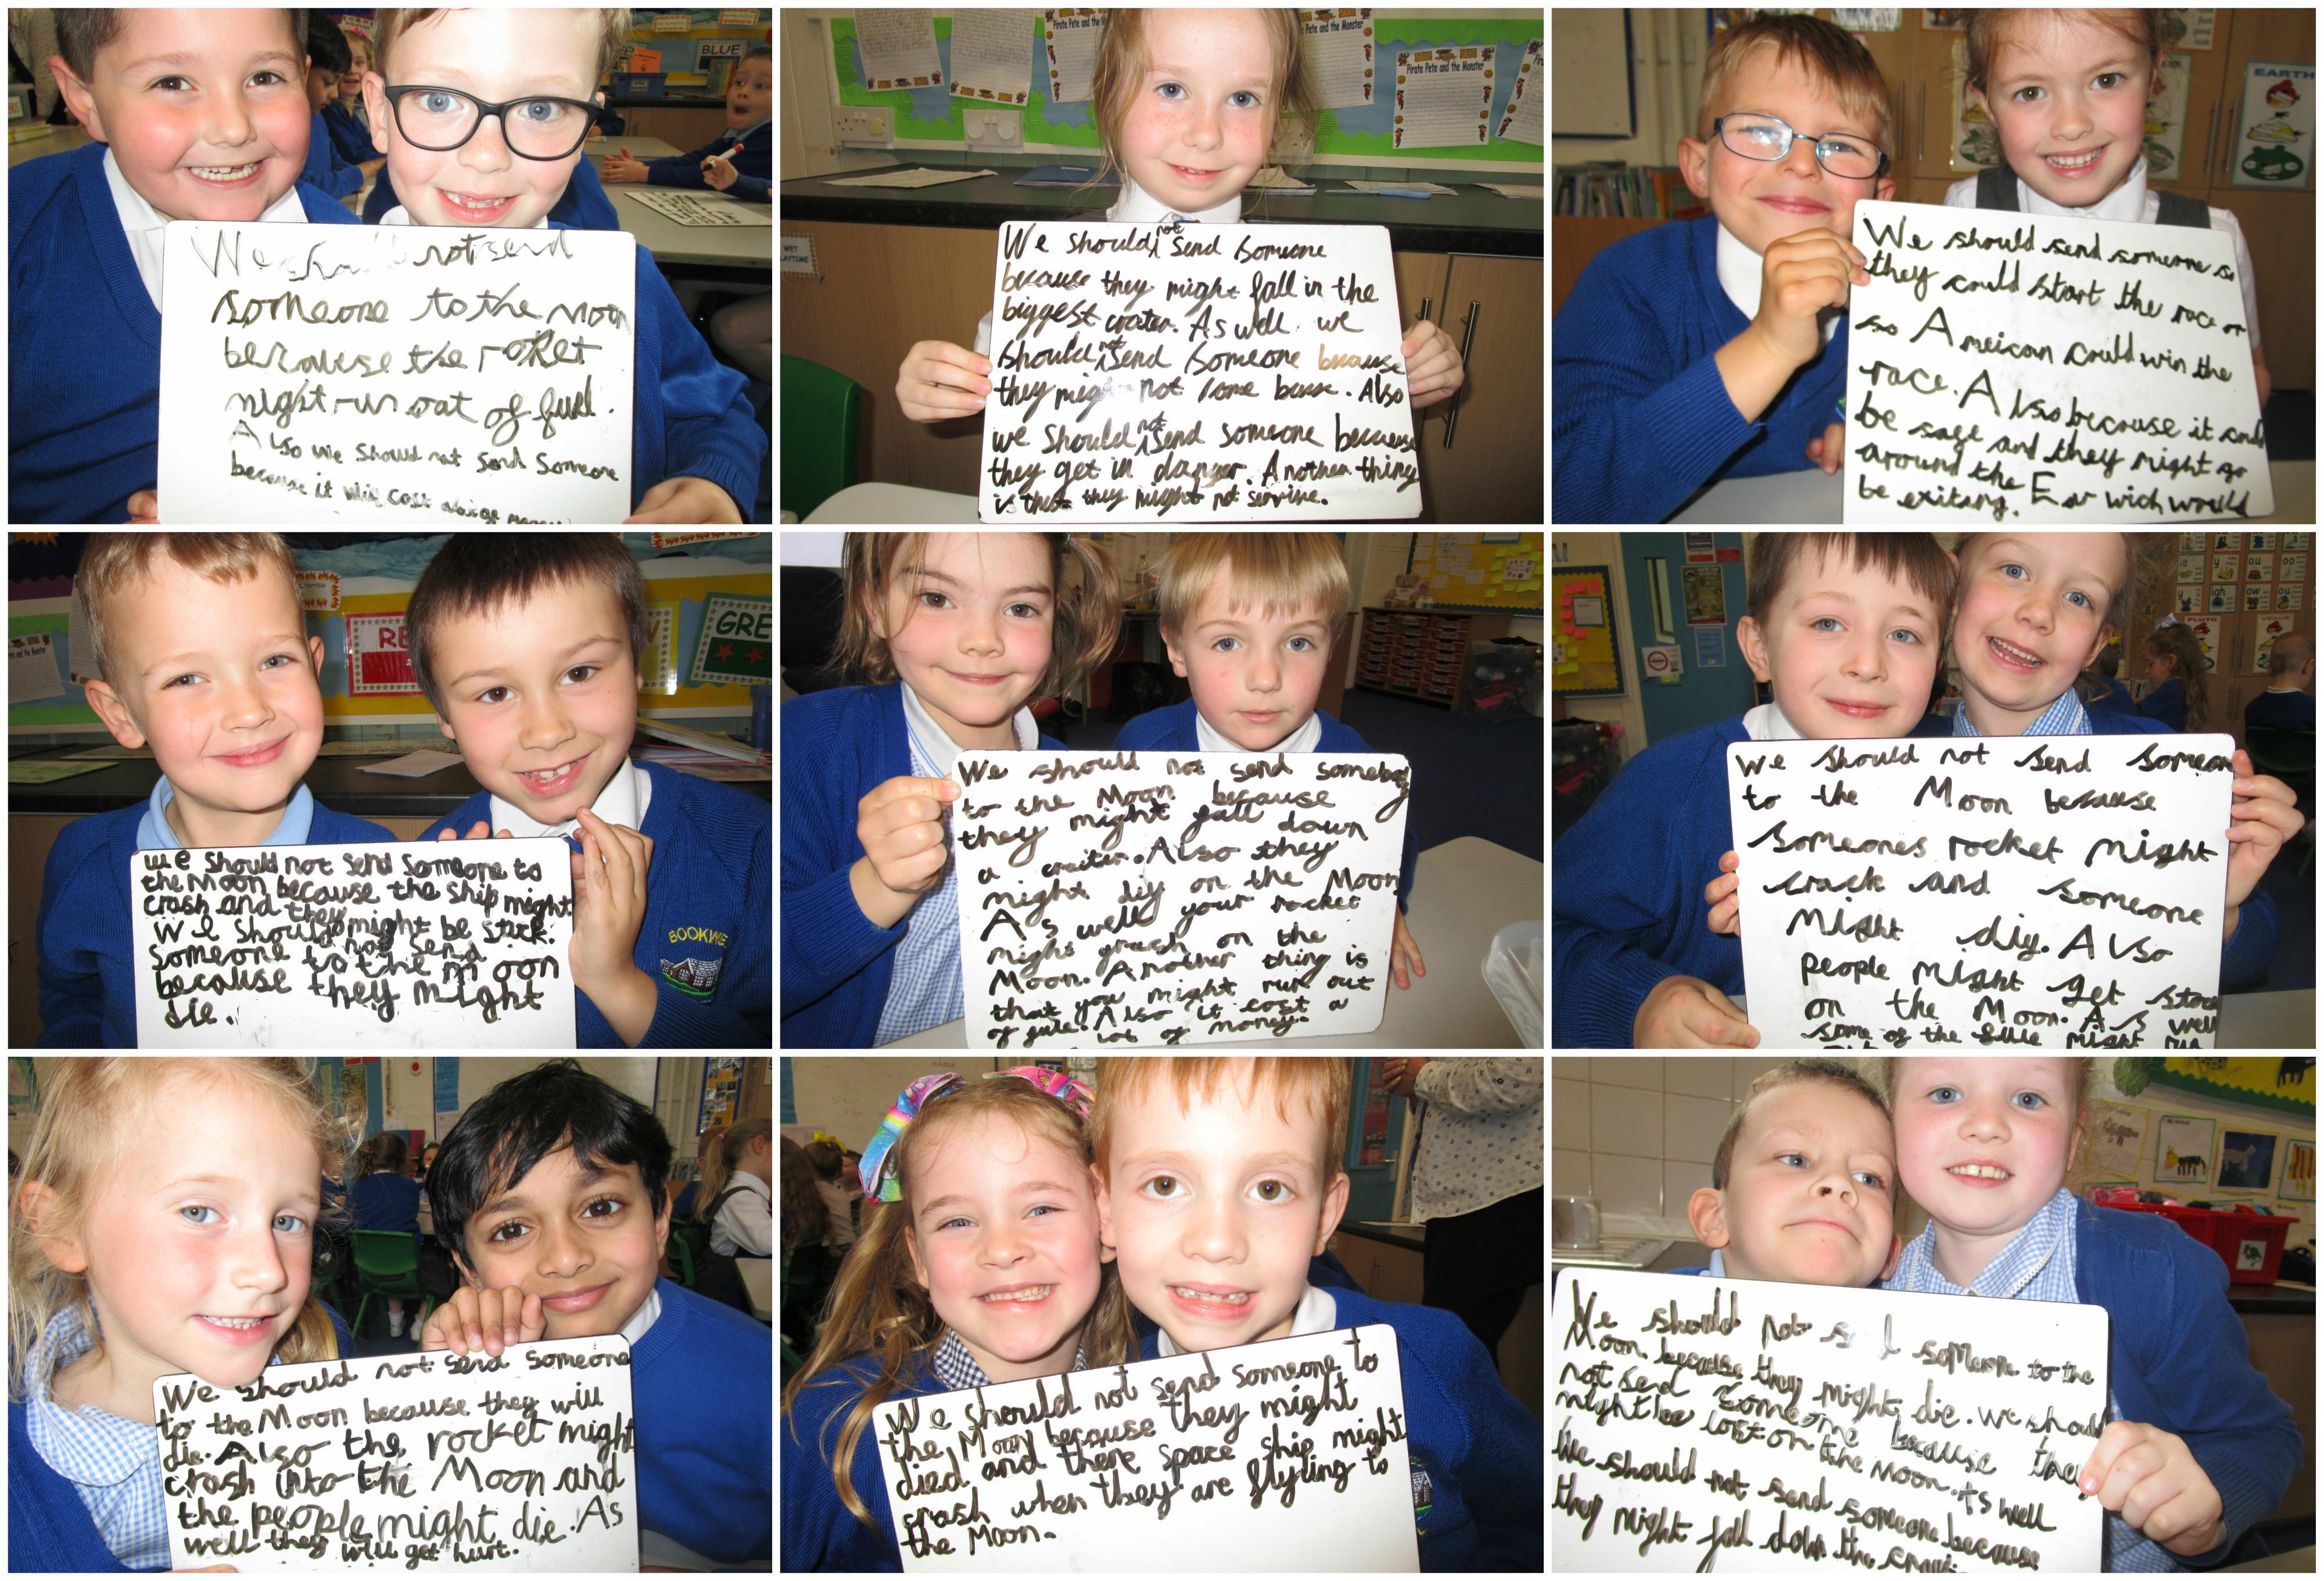 BLUE
We should not send
someone to the moon
because the rocket
might run out of fuel.
Also we should not send someone
because it will cost a
Pirate Pete and the Monster
Pete and the Monster
WET
PLAYTIME
We should not send someone
because they might fall in the
biggest crater. As well we
should not send someone because
they might not come back. Also
we should not send someone because
they get in danger. Another thing
is that they might not servive.
EARTH
We should send someone so
they could start the race or
so Ameican could win the
race. Also because it could
be sage and they might go
around the E or wich would
be exitang.
RE
W
GRE
BOOKWE
we should not send someone to
the Moon because the ship might
crash and they might be stuck.
we should not send
someone to the moon
because they might
die.
We should not send somebody
to the Moon because
they might fall down
a craiter. Also they
might diy on the Moon
As well your rocket
might grash on the
Moon. Another thing is
that you might run out
of fule. Also it cost a
lot of money.
y
igh
ow
ou
oo
PLUTO
we should not send someone
to the Moon because
someones rocket might
crack and someone
might diy. Also
people might get
on the Moon. As well
some of the fule might run
We should not send someone
to the Moon because they will
die. Also the rocket might
crash into the Moon and
the people might die. As
well they will get hurt.
We should not send someone to
the Moon because they might
died and there space ship might
crash when they are flyling to
the Moon.
We should not someone to the
Moon because they might die. we should
not send someone because they
might be lost on the Moon. As well
We should not send someone because
they might fall down the